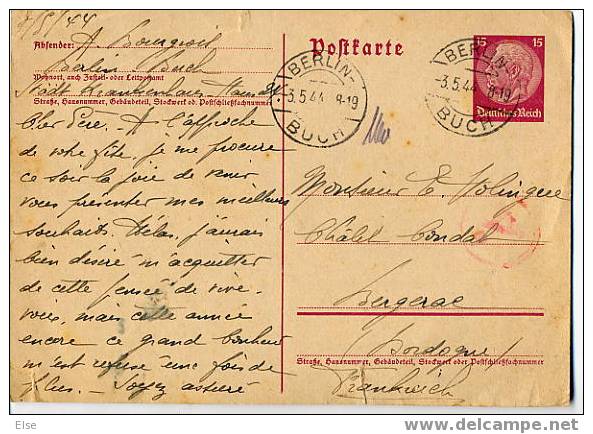 Absender: A. Bourgeois
Berlin Buch
Wohnort, auch Zustell- oder Leitpostamt
Städt Krankenhaus
Straße, Hausnummer, Gebäudeteil, Stockwerk od. Postschließfachnummer
Postkarte
BERLIN-
3.5.44 8-19
BUCH
BERLIN-
-3.5.44 8-19
BUCH
15 15
Deutsches Reich
Cher Père. A l'approche
de votre fête, je me procure
ce soir la joie de venir
vous présenter mes meilleurs
souhaits. Hélas, j'aurais
bien désiré m'acquitter
de cette pensée de vive
voix, mais cette année
encore ce grand bonheur
m'est refusé une fois de
plus. - Soyez assuré
Monsieur E.
Châlet Condat
Bergerac
Dordogne
Straße, Hausnummer, Gebäudeteil, Stockwerk oder Postschließfachnummer
Frankreich
Else
delcampe.net